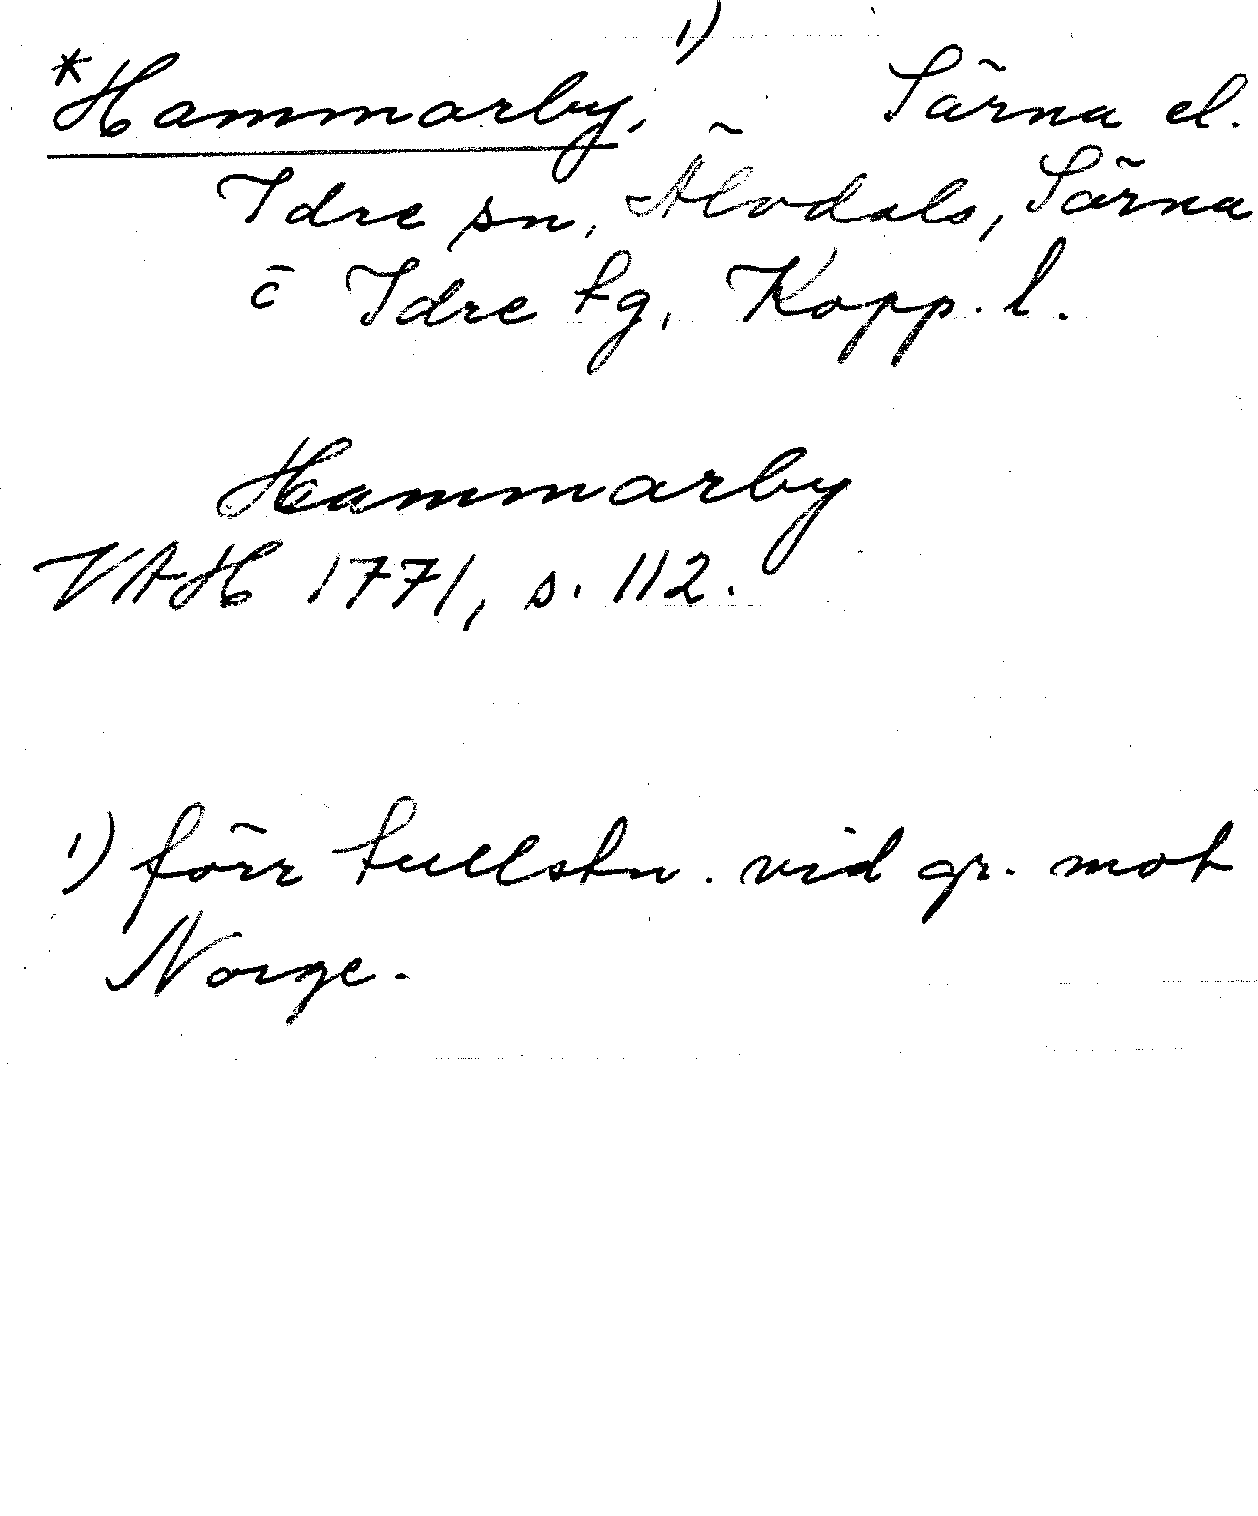 *Hammarby, 1) Särna el.
Idre sn, Älvdals, Särna
o Idre tg, Kopp. l.
Hammarby
VAH 1771, s. 112.
1) förr tullstn. vid gr. mot
Norge.